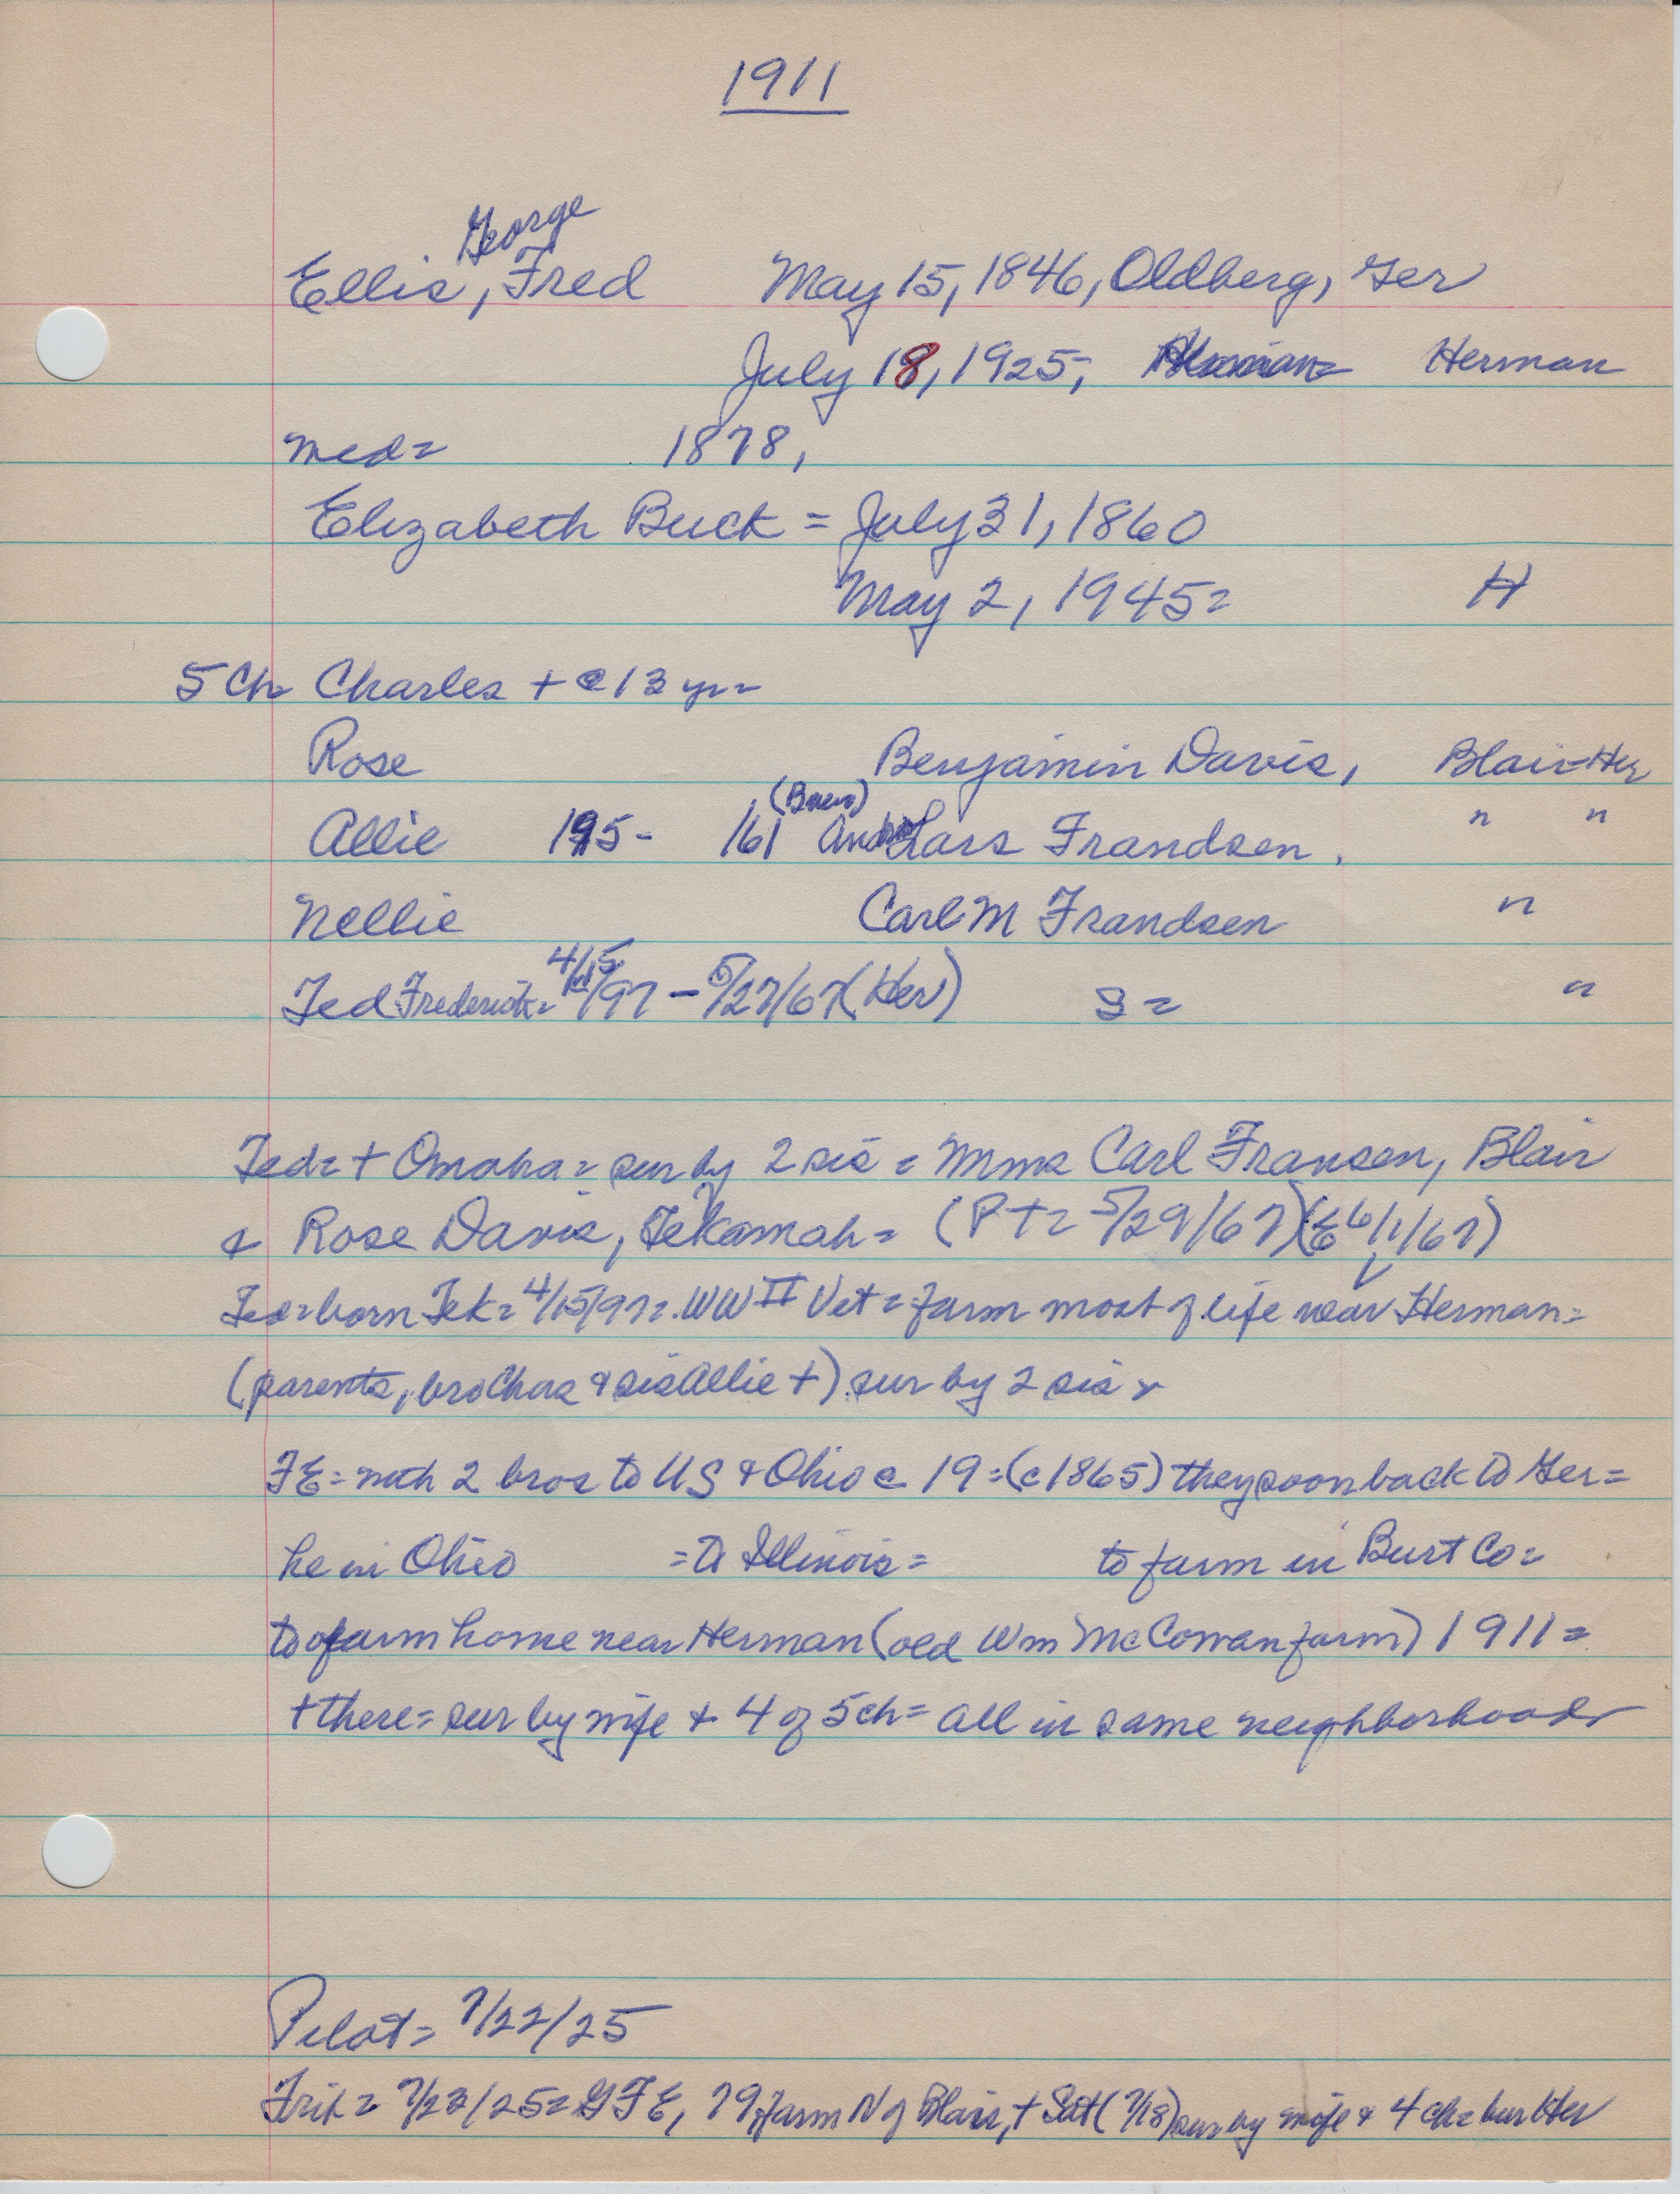 1911
George
Ellis, Fred May 15, 1846, Oldberg, Ger
July 18, 1925, Herman
med= 1878,
Elizabeth Buck = July 31, 1860
May 2, 1945= H
5 Ch Charles + @ 13 yr=
Rose Benjamin Davis, Blair-Her
Allie 195- 161 Lars Frandsen. " "
Nellie Carl M Frandsen "
Ted Frederick= 4/15/97 - 5/27/67 (Her) S= "
Ted=+ Omaha= sur by 2 sis = Mms Carl Fransen, Blair
& Rose Davis, Tekamah= (Pt= 5/29/67)(E 6/1/67)
Ted=born Tek= 4/15/97=. WW II Vet=farm most of life near Herman=
(parents, bro Chas & sis Allie +) sur by 2 sis
FE= with 2 bros to US & Ohio @ 19=(c1865) they soon back to Ger=
he in Ohio =to Illinois= to farm in Burt Co=
to farm home near Herman (old Wm McCowan farm) 1911=
+there= sur by wife & 4 of 5ch= all in same neighborhood
Pilot= 7/22/25
7/23/25= GFE, 79, farm N of Blair, + Sat (7/18) sur by wife & 4 ch= bur Her